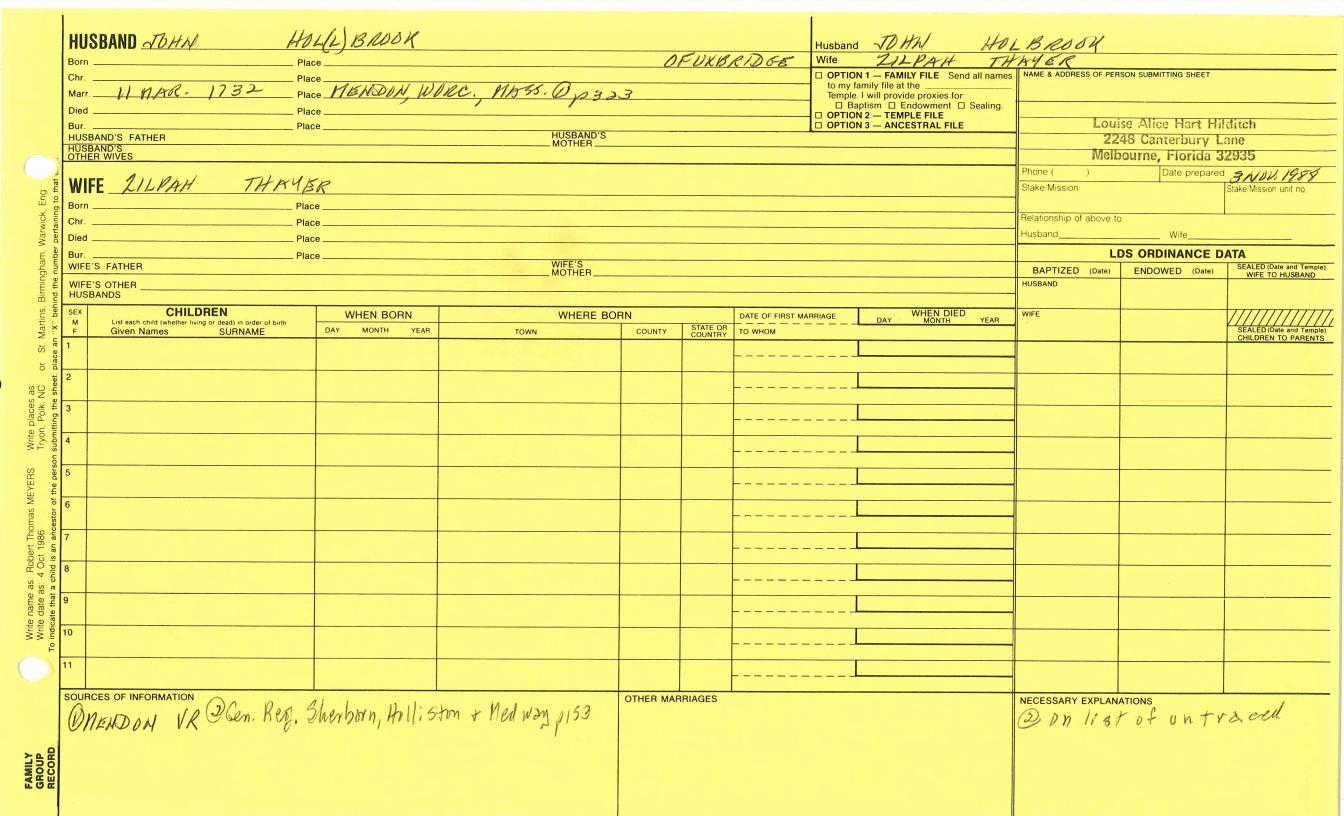 HUSBAND JOHN HOL(L)BROOK
Born Place OF UXBRIDGE
Chr. Place
Marr 11 MAR. 1732 Place MENDON, WORC., MASS. ① p323
Died Place
Bur. Place
HUSBAND'S FATHER HUSBAND'S MOTHER
HUSBAND'S OTHER WIVES
Husband JOHN HOLBROOK
Wife ZILPAH THAYER
☐ OPTION 1 — FAMILY FILE Send all names
to my family file at the
Temple. I will provide proxies for:
☐ Baptism ☐ Endowment ☐ Sealing.
☐ OPTION 2 — TEMPLE FILE
☐ OPTION 3 — ANCESTRAL FILE
NAME & ADDRESS OF PERSON SUBMITTING SHEET
Louise Alice Hart Hilditch
2248 Canterbury Lane
Melbourne, Florida 32935
Phone ( ) Date prepared 3 NOV. 1988
Stake/Mission Stake/Mission unit no.
Relationship of above to
Husband Wife
WIFE ZILPAH THAYER
Born Place
Chr. Place
Died Place
Bur. Place
WIFE'S FATHER WIFE'S MOTHER
WIFE'S OTHER HUSBANDS
LDS ORDINANCE DATA
BAPTIZED (Date) ENDOWED (Date) SEALED (Date and Temple) WIFE TO HUSBAND
HUSBAND
WIFE
SEALED (Date and Temple) CHILDREN TO PARENTS
SEX M F
CHILDREN
List each child (whether living or dead) in order of birth
Given Names SURNAME
WHEN BORN
DAY MONTH YEAR
WHERE BORN
TOWN COUNTY STATE OR COUNTRY
DATE OF FIRST MARRIAGE
TO WHOM
WHEN DIED
DAY MONTH YEAR
1
2
3
4
5
6
7
8
9
10
11
SOURCES OF INFORMATION
① MENDON VR ② Gen. Reg. Sherborn, Holliston + Medway p153
OTHER MARRIAGES
NECESSARY EXPLANATIONS
② on list of untraced
Write name as: Robert Thomas MEYERS Write places as: Tryon, Polk, NC or St. Martins, Birmingham, Warwick, Eng
Write date as: 4 Oct 1986
To indicate that a child is an ancestor of the person submitting the sheet, place an "X" behind the number pertaining to that
FAMILY
GROUP
RECORD